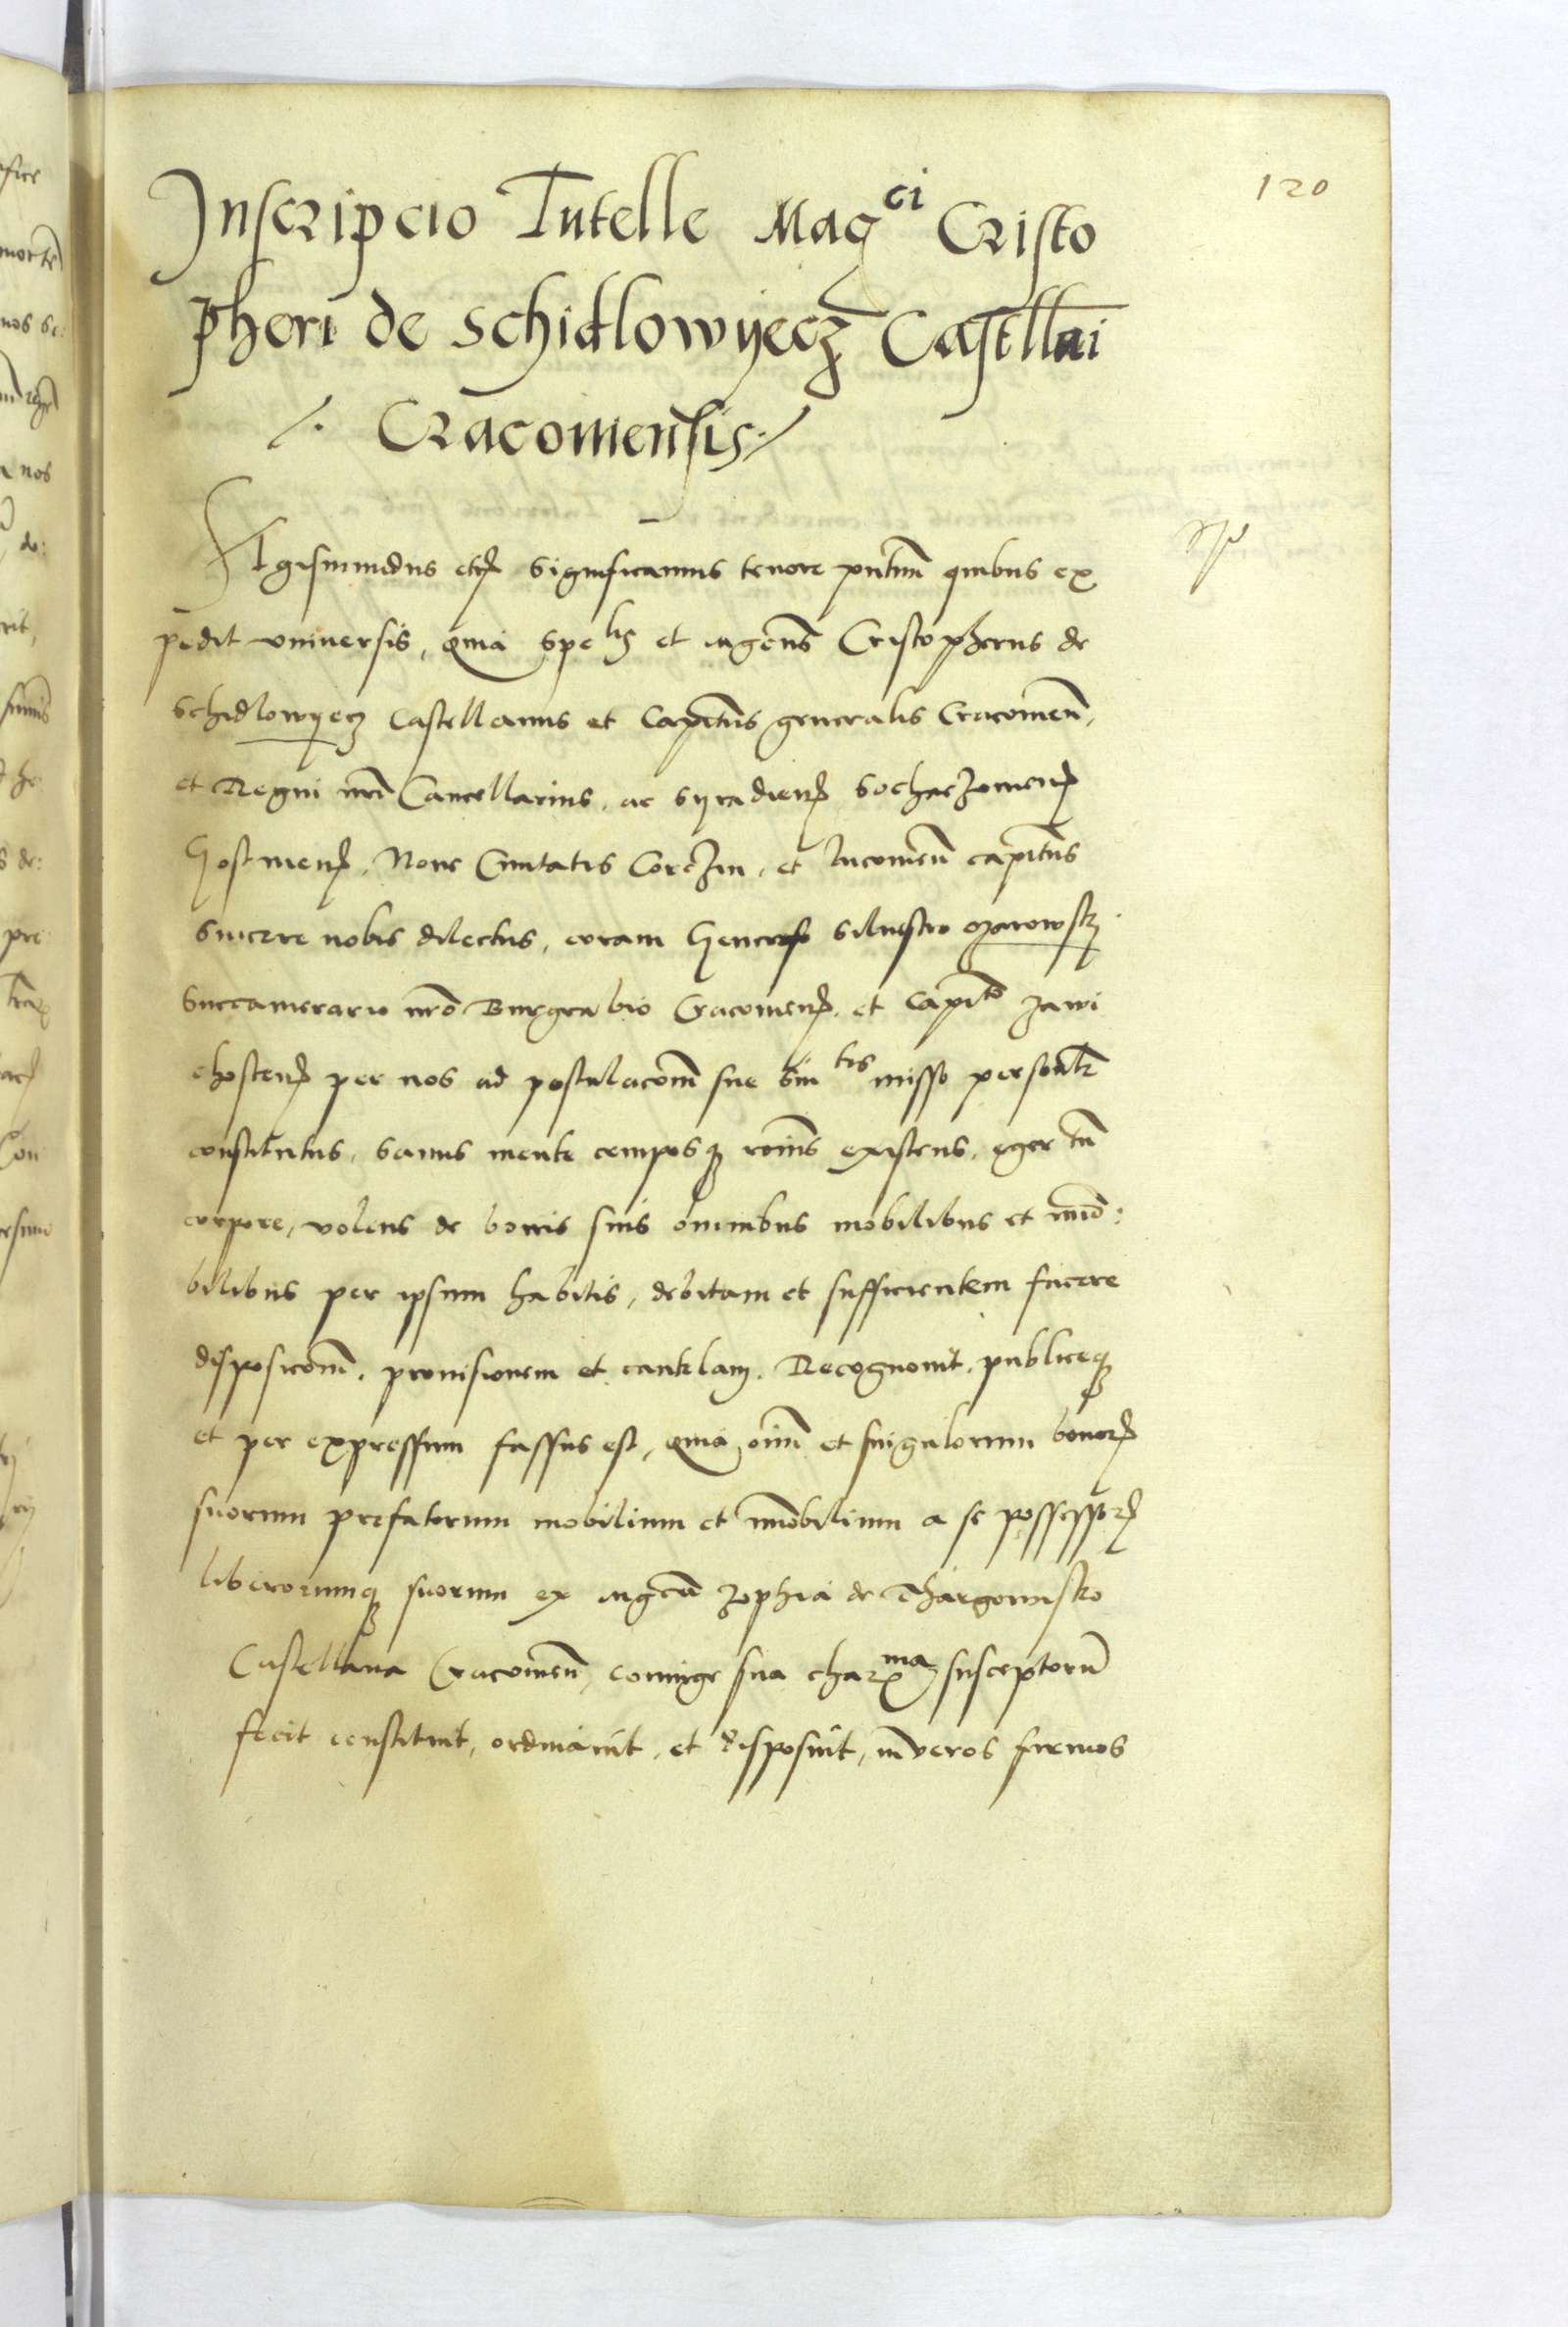 120
Inscripcio Tutelle Mag^ci Cristo
pheri de Schidlowyecz Castellāi
/. Cracoviensis ./
Sigismundus etc̄ Significamus tenore pn̄tium quibus ex
pedit universis, Quia Spe^lis et mgcūs Cristopherus de
Schidlowyecz Castellanus et Capitn̄s generalis Cracovien̄,
et Regni nr̄i Cancellarius, ac Syradien̄ Sochaczovien̄
Gostinen̄, Nove Civitatis Corczin, et Lucovien̄ capitn̄s
sincere nobis dilectus, coram Generoso Silvestro Ozarowsky
Succamerario nr̄o Burgrabio Cracovien̄, et Capit̄o Zawi
chosten̄ per nos ad postulacōnem sue Sin^tis misso personalr̄
constitutus, sanus mente composq̃ rōnis existens, eger tn̄
corpore, volens de bonis suis omnibus mobilibus et im̄o:
bilibus per ipsum habitis, debitam et sufficientem facere
disposicōnem, provisionem et cautelam, Recognovit, publiceq̃
et per expressum fassus est, Quia, om̄ium et singulorum bonor̄
suorum prefatorum mobilium et im̄obilium a se possessor̄
liberorumq̃ suorum ex mgcā Zophia de Thargowisko
Castellana Cracovien̄, coniuge sua char^ma susceptorum̄
fecit constituit, ordinavit, et disposuit, in veros firmos